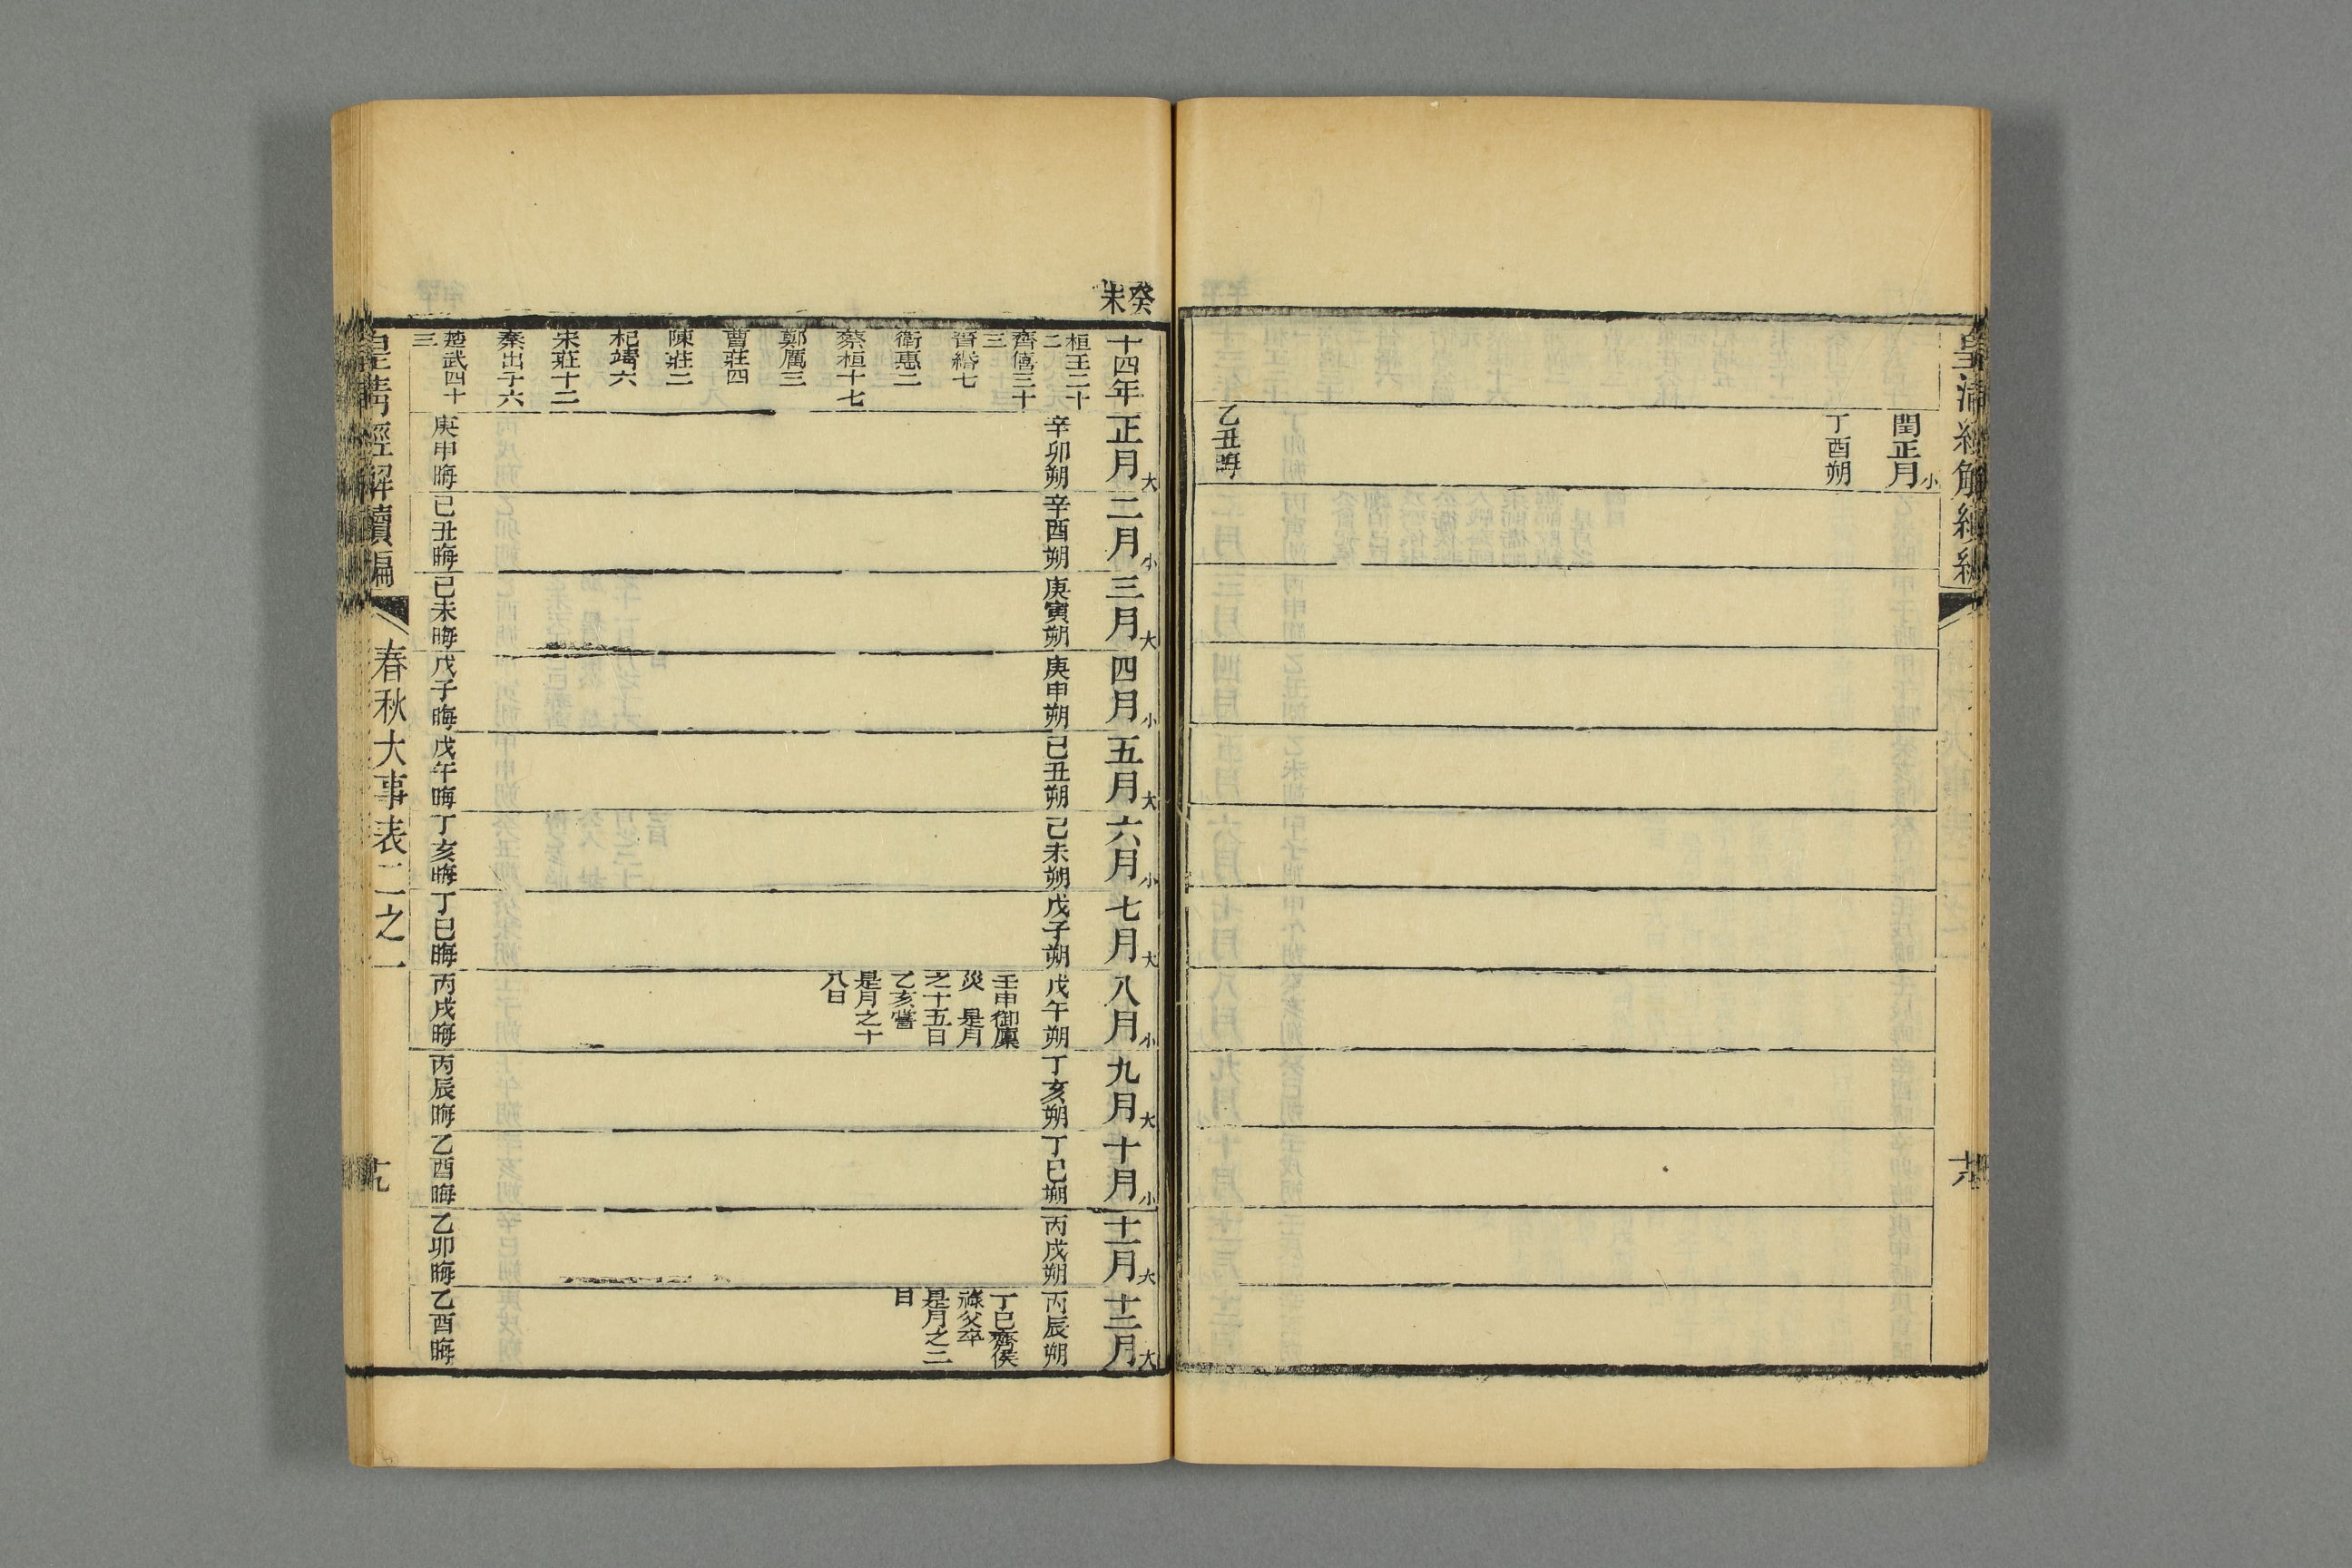 皇清經解續編
閏正月小
丁酉朔
乙丑晦
癸未
十四年
桓王二十二
齊僖三十三
晉緡七
衛惠二
蔡桓十七
鄭厲三
曹莊四
陳莊二
杞靖六
宋莊十二
秦出子六
楚武四十三
正月大
辛卯朔
庚申晦
二月小
辛酉朔
己丑晦
三月大
庚寅朔
己未晦
四月小
庚申朔
戊子晦
五月大
己丑朔
戊午晦
六月小
己未朔
丁亥晦
七月大
戊子朔
丁巳晦
八月小
戊午朔
壬申御廩
災 是月
之十五日
乙亥嘗
是月之十
八日
丙戌晦
九月大
丁亥朔
丙辰晦
十月小
丁巳朔
乙酉晦
十一月大
丙戌朔
乙卯晦
十二月大
丙辰朔
丁巳齊侯
祿父卒
是月之二
日
乙酉晦
皇清經解續編
春秋大事表二之一
十九